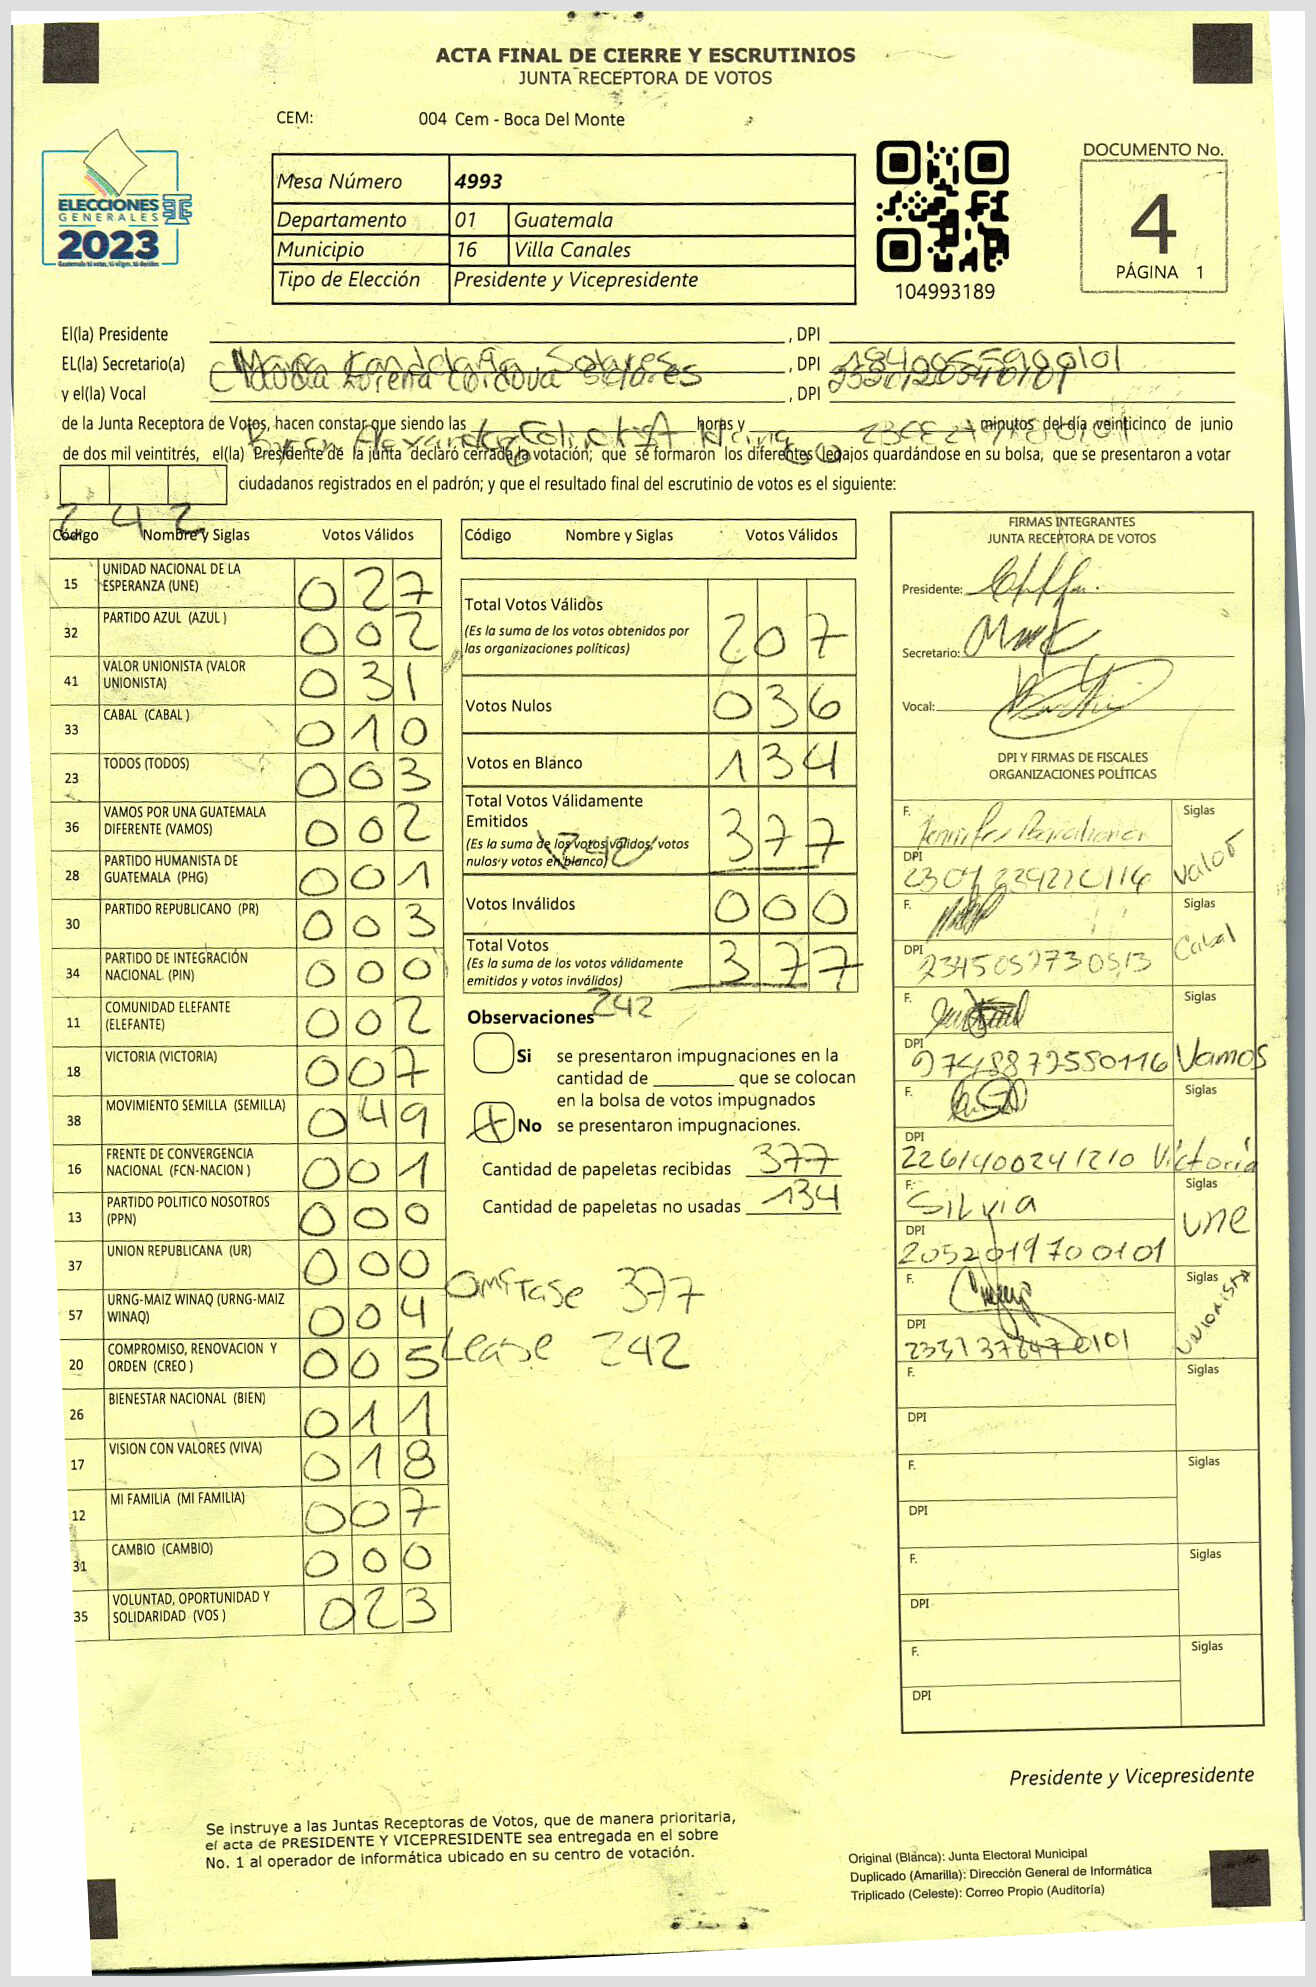 ACTA FINAL DE CIERRE Y ESCRUTINIOS
JUNTA RECEPTORA DE VOTOS
CEM: 004 Cem - Boca Del Monte
ELECCIONES
GENERALES
2023
Mesa Número 4993
Departamento 01 Guatemala
Municipio 16 Villa Canales
Tipo de Elección Presidente y Vicepresidente
104993189
DOCUMENTO No.
4
PÁGINA 1
El(la) Presidente , DPI
EL(la) Secretario(a) Solares , DPI
y el(la) Vocal Claudia Lorena Cordova Solares , DPI
de la Junta Receptora de Votos, hacen constar que siendo las horas y minutos del día veinticinco de junio
de dos mil veintitrés, el(la) Presidente de la junta declaró cerrada la votación; que se formaron los diferentes legajos guardándose en su bolsa, que se presentaron a votar
ciudadanos registrados en el padrón; y que el resultado final del escrutinio de votos es el siguiente:
242
Código Nombre y Siglas Votos Válidos
15 UNIDAD NACIONAL DE LA ESPERANZA (UNE) 027
32 PARTIDO AZUL (AZUL ) 002
41 VALOR UNIONISTA (VALOR UNIONISTA) 031
33 CABAL (CABAL ) 010
23 TODOS (TODOS) 003
36 VAMOS POR UNA GUATEMALA DIFERENTE (VAMOS) 002
28 PARTIDO HUMANISTA DE GUATEMALA (PHG) 001
30 PARTIDO REPUBLICANO (PR) 003
34 PARTIDO DE INTEGRACIÓN NACIONAL (PIN) 000
11 COMUNIDAD ELEFANTE (ELEFANTE) 002
18 VICTORIA (VICTORIA) 007
38 MOVIMIENTO SEMILLA (SEMILLA) 049
16 FRENTE DE CONVERGENCIA NACIONAL (FCN-NACION ) 001
13 PARTIDO POLITICO NOSOTROS (PPN) 000
37 UNION REPUBLICANA (UR) 000
57 URNG-MAIZ WINAQ (URNG-MAIZ WINAQ) 004
20 COMPROMISO, RENOVACION Y ORDEN (CREO ) 005
26 BIENESTAR NACIONAL (BIEN) 011
17 VISION CON VALORES (VIVA) 018
12 MI FAMILIA (MI FAMILIA) 007
31 CAMBIO (CAMBIO) 000
35 VOLUNTAD, OPORTUNIDAD Y SOLIDARIDAD (VOS ) 023
Código Nombre y Siglas Votos Válidos
Total Votos Válidos 207
(Es la suma de los votos obtenidos por
las organizaciones políticas)
Votos Nulos 036
Votos en Blanco 134
Total Votos Válidamente
Emitidos 377
(Es la suma de los votos válidos, votos
nulos y votos en blanco)
Votos Inválidos 000
Total Votos 377
(Es la suma de los votos válidamente
emitidos y votos inválidos)
242
Observaciones
Si se presentaron impugnaciones en la
cantidad de ________ que se colocan
en la bolsa de votos impugnados
X No se presentaron impugnaciones.
Cantidad de papeletas recibidas 377
Cantidad de papeletas no usadas 134
Omitase 377
Lease 242
FIRMAS INTEGRANTES
JUNTA RECEPTORA DE VOTOS
Presidente:
Secretario:
Vocal:
DPI Y FIRMAS DE FISCALES
ORGANIZACIONES POLÍTICAS
F. Siglas
DPI Valor
F. Siglas
DPI Cabal
F. Siglas
DPI Vamos
F. Siglas
DPI
2261400241210 Victoria
F. Silvia Siglas
DPI une
2052019700101
F. Siglas
DPI UNIONISTA
F. Siglas
DPI
F. Siglas
DPI
F. Siglas
DPI
F. Siglas
DPI
Presidente y Vicepresidente
Se instruye a las Juntas Receptoras de Votos, que de manera prioritaria,
el acta de PRESIDENTE Y VICEPRESIDENTE sea entregada en el sobre
No. 1 al operador de informática ubicado en su centro de votación.
Original (Blanca): Junta Electoral Municipal
Duplicado (Amarilla): Dirección General de Informática
Triplicado (Celeste): Correo Propio (Auditoría)